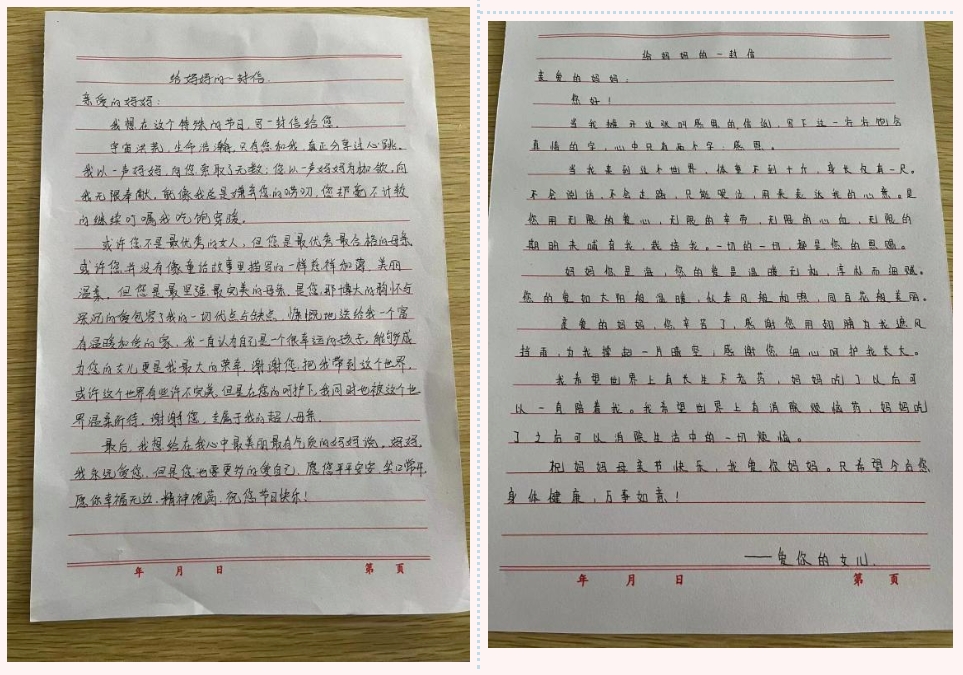 给妈妈的一封信.
亲爱的妈妈:
我想在这个特殊的节日,写一封信给您,
宇宙洪荒,生命浩瀚,只有您和我,真正分享过心跳。
我以一声妈妈,向您索取了无数;您以一声妈妈为枷锁,向
我无限奉献。就像我总是嫌弃您的唠叨,您却毫不计较
的继续叮嘱我吃饱穿暖。
或许您不是最优秀的女人,但您是最优秀最合格的母亲
或许您并没有像童话故事里描写的一样慈祥和蔼,美丽
温柔,但您是最坚强最完美的母亲,是您,那博大的胸怀与
深沉的爱包容了我的一切优点与缺点,慷慨地送给我一个富
有温暖和爱的家,我一直认为自己是一个很幸运的孩子,能够成
为您的女儿更是我最大的荣幸,谢谢您,把我带到这个世界,
或许这个世界有些许不完美,但是在您的呵护下,我同时也被这个世
界温柔所待,谢谢您,专属于我的超人母亲.
最后,我想给在我心中最美丽最有气质的妈妈说,妈妈,
我永远爱您,但是您也要更多的爱自己,愿您平平安安,笑口常开,
愿你幸福无边,精神饱满,祝您节日快乐!
年 月 日 第 页
给妈妈的一封信
亲爱的妈妈:
您好!
当我摊开这张叫感恩的信纸,写下这一封封饱含
真情的字,心中只有两个字,感恩。
当我来到这个世界,体重不到十斤,身长仅有一尺。
不会说话,不会走路,只能哭泣,用来表达我的心意。是
您用无限的爱心,无限的辛苦,无限的心血,无限的
期盼来哺育我,栽培我。一切的一切,都是您的恩赐。
妈妈你是海,你的爱是温暖无私,淳朴而细腻。
您的爱如太阳般温暖,似春风般和煦,同百花般美丽。
亲爱的妈妈,你辛苦了,感谢您用翅膀为我遮风
挡雨,为我撑起一片晴空,感谢您细心呵护我长大。
我希望世界上有长生不老药,妈妈吃了以后可
以一直陪着我。我希望世界上有消除烦恼药,妈妈吃
了之后可以消除生活中的一切烦恼。
祝妈妈母亲节快乐,我爱你妈妈。只希望今后您
身体健康,万事如意!
——爱你的女儿.
年 月 日 第 页